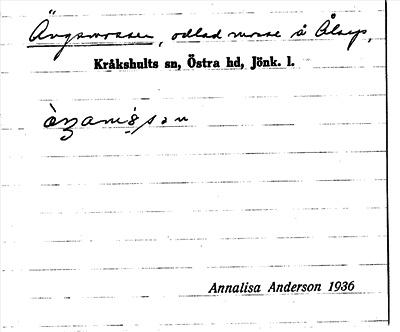 Ängsmossen, odlad mosse å Ålsryp,
Kråkshults sn, Östra hd, Jönk. l.
Annalisa Anderson 1936